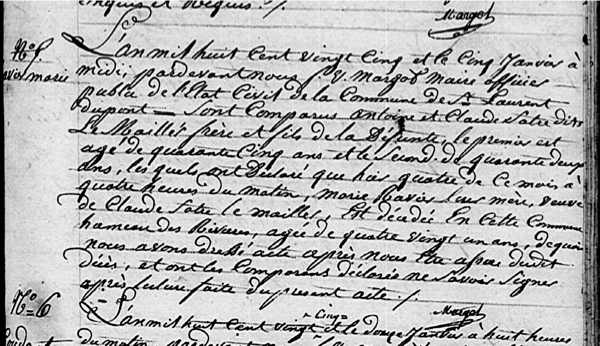 enquis et Requis ./.
Margot
N.º 5
L'an mil huit Cent vingt Cinq et le Cinq Janvier à
midi, pardevant nous J. V. Margot Maire officier
Ravix marie
public de l'Etat Civil de la Commune de St Laurent
dupont — sont Comparus Antoine et Claude Satre dits
Le Maillet frère et fils de la Défunte, le premier est
agé de quarante Cinq ans et le second de quarante deux
ans, les quels ont Déclaré que hier quatre de Ce mois à
quatre heures du matin, Marie Ravix Leur mère, veuve
de Claude Satre le mailler, Est décédée En Cette Commune
hameau des Rivieres, agée de quatre vingt un ans, de quoi
nous avons dressé acte après nous être assuré dudit
décès, et ont les Comparans déclarés ne savoir signer
après lecture faite du present acte ./.
Margot
N.º 6
= Cinq =
L'an mil huit Cent vingt et le douze Janvier à huit heures
du matin